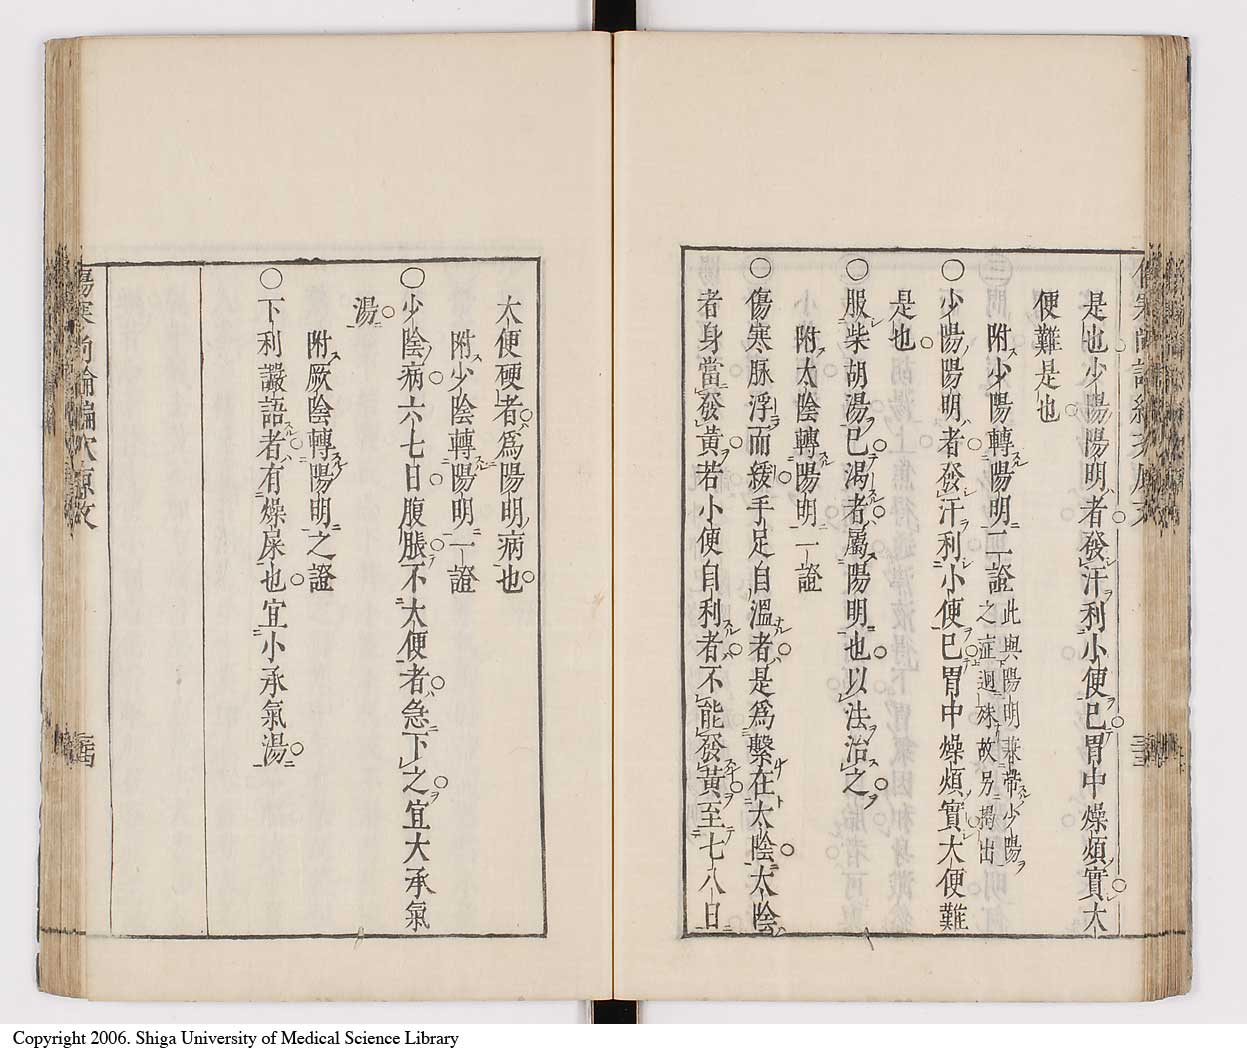 是也少陽陽明者發汗利小便已胃中燥煩實大
便難是也
附少陽轉陽明二證
此與陽明兼帶少陽
之症迥殊故另揭出
〇少陽陽明者發汗利小便已胃中燥煩實大便難
是也
〇服柴胡湯已渴者屬陽明也以法治之
附太陰轉陽明一證
〇傷寒脉浮而緩手足自溫者是爲繫在太陰太陰
者身當發黃若小便自利者不能發黃至七八日
大便硬者爲陽明病也
附少陰轉陽明一證
〇少陰病六七日腹脹不大便者急下之宜大承氣
湯
附厥陰轉陽明之證
〇下利讝語者有燥屎也宜小承氣湯
傷寒尚論編次原文
Copyright 2006. Shiga University of Medical Science Library